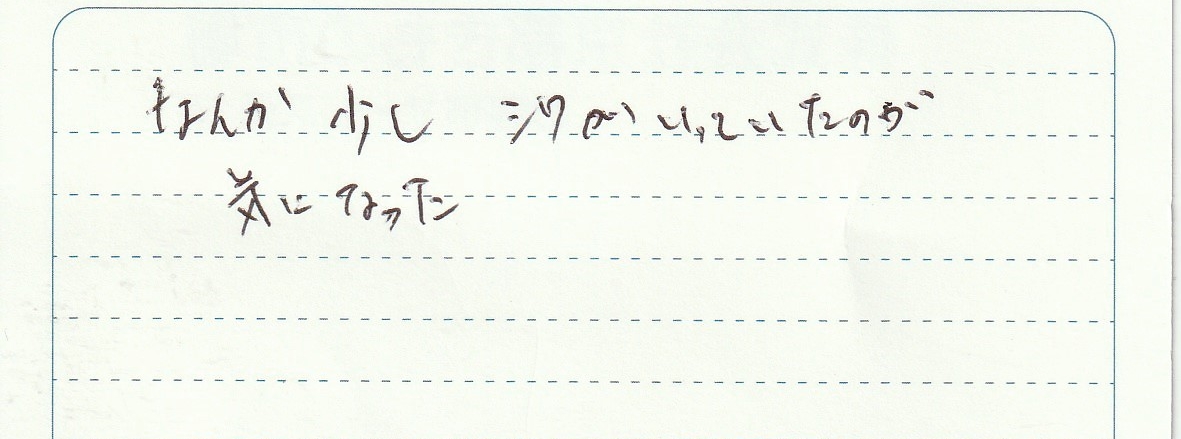 なんか 少し シワがいっていたのが
気になった